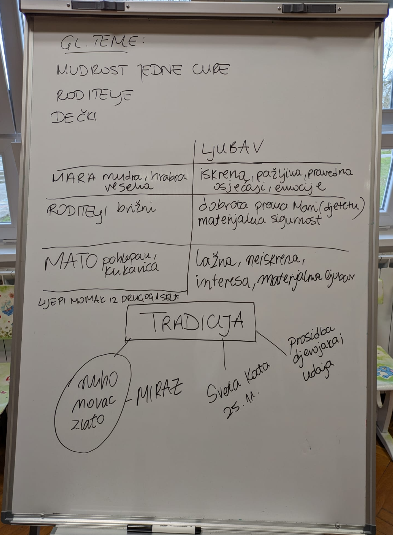 GL. TEME:
MUDROST JEDNE CURE
RODITELJE
DEČKI
LJUBAV
MARA mudra, hrabra
vesela
iskrena, pažljiva, pravedna
osjećaji, emocije
RODITELJI brižni
dobra za prava Mam (djetetu)
materijalna sigurnost
MATO pohlepan,
kukavica
lažna, neiskrena,
interesa, materijalna ljubav
LIJEPI MOMAK IZ DRUGOG SELA
TRADICIJA
ruho
novac
zlato
MIRAZ
Sveta Kata
25. 11.
prosidba
djevojaka i
udaja